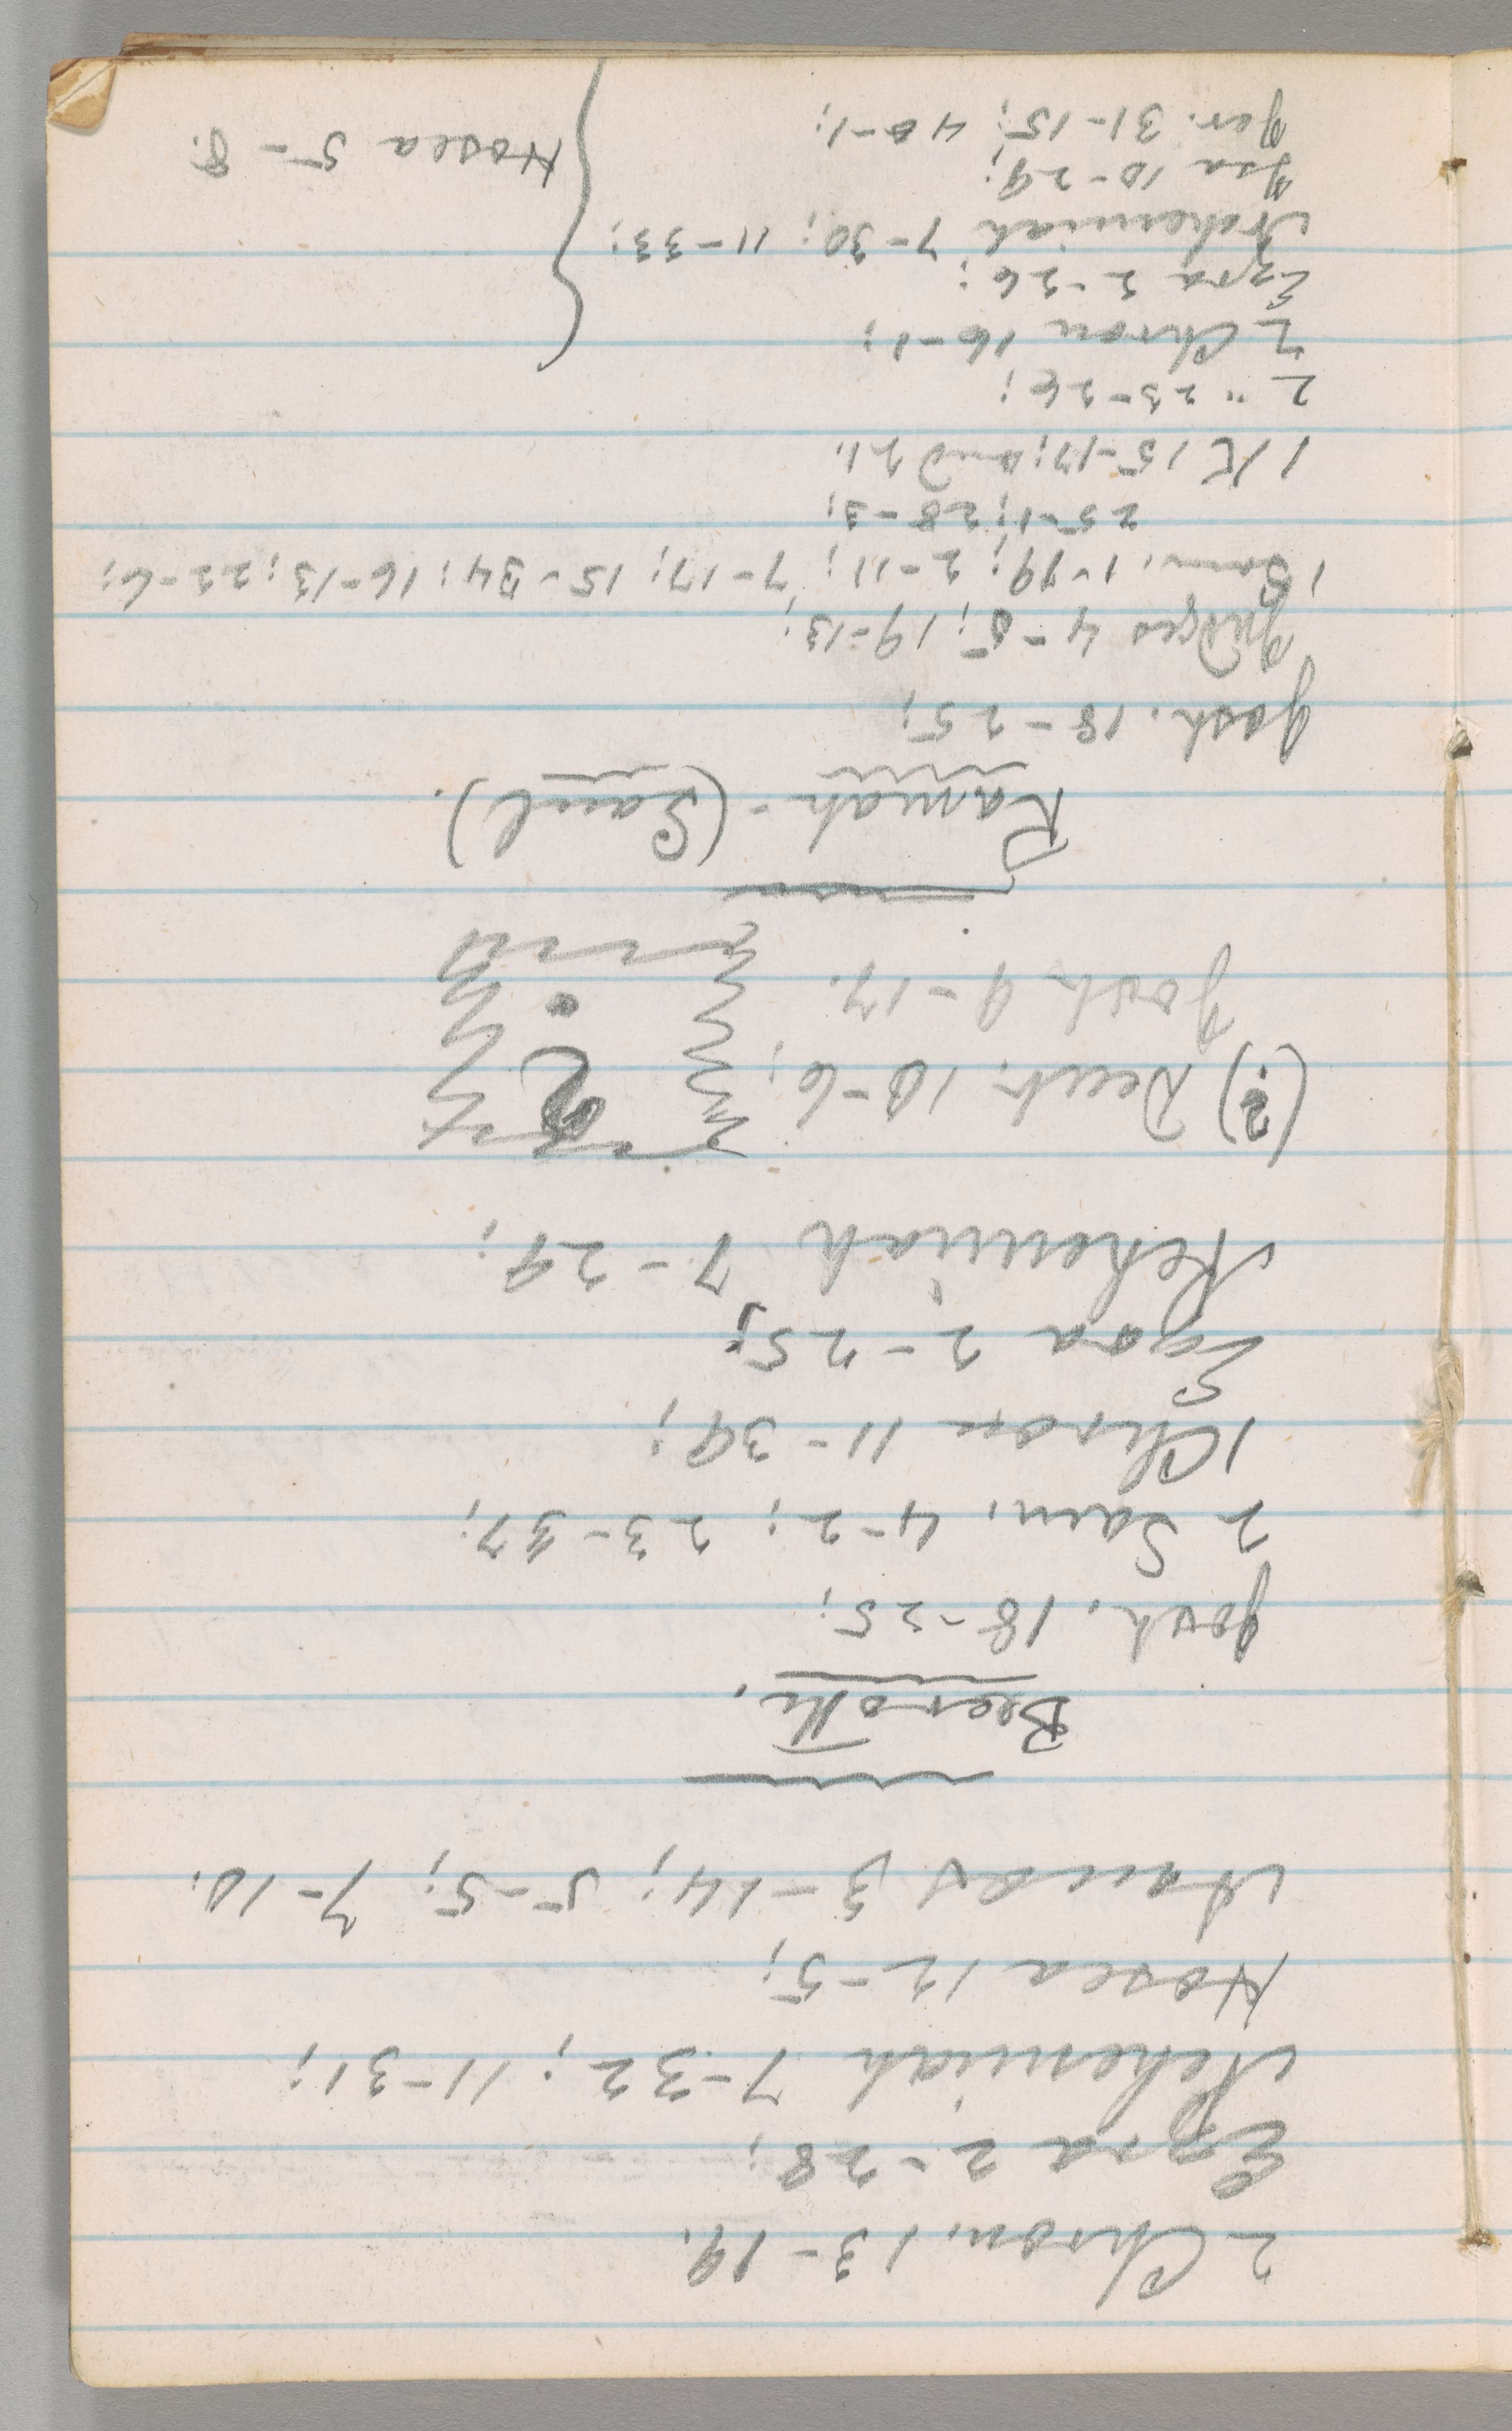 2 Chron. 13-19.
Ezra 2-28;
Nehemiah 7-32; 11-31;
Hosea 12-5;
Amos 3-14; 5-5; 7-10.
Beeroth.
Josh. 18-25;
2 Sam. 4-2; 23-37;
1 Chron 11-39;
Ezra 2-25;
Nehemiah 7-29;
(?) Deut. 10-6; ?
Josh 9-17.
Ramah - (Saul).
Josh. 18-25;
Judges 4-5; 19-13;
1 Sam. 1-19; 2-11; 7-17; 15-34; 16-13; 22-6;
25-1; 28-3;
1 K 15-17; and 21.
2 " 23-26;
2 Chron 16-1;
Ezra 2-26;
Nehemiah 7-30; 11-33;
Isa 10-29;
Jer. 31-15; 40-1;
Hosea 5-8.